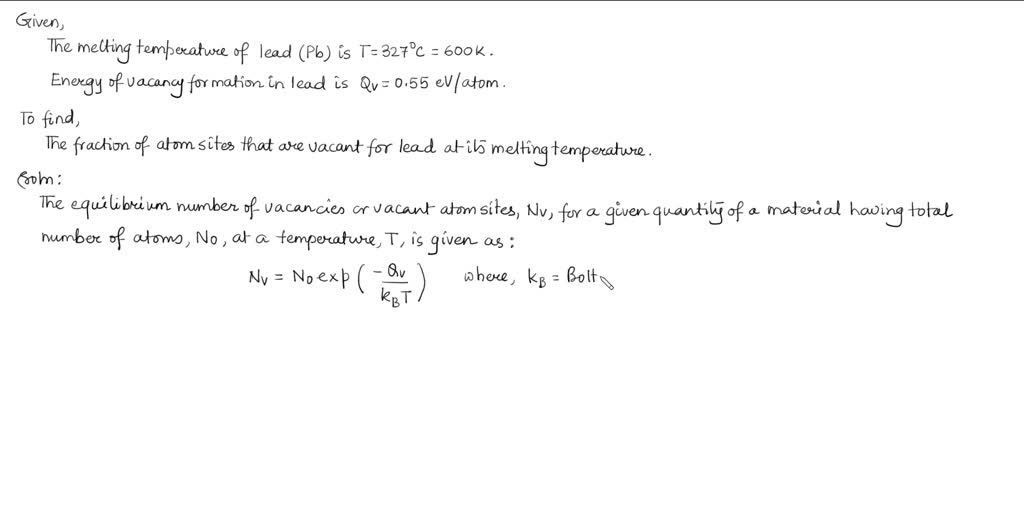 Given,
The melting temperature of lead (Pb) is T = 327°C = 600K.
Energy of vacancy formation in lead is Qv = 0.55 eV/atom.
To find,
The fraction of atom sites that are vacant for lead at its melting temperature.
Soln:
The equilibrium number of vacancies or vacant atom sites, Nv, for a given quantity of a material having total
number of atoms, No, at a temperature, T, is given as:
Nv = No exp ( -Qv / kBT ) where, kB = Bolt